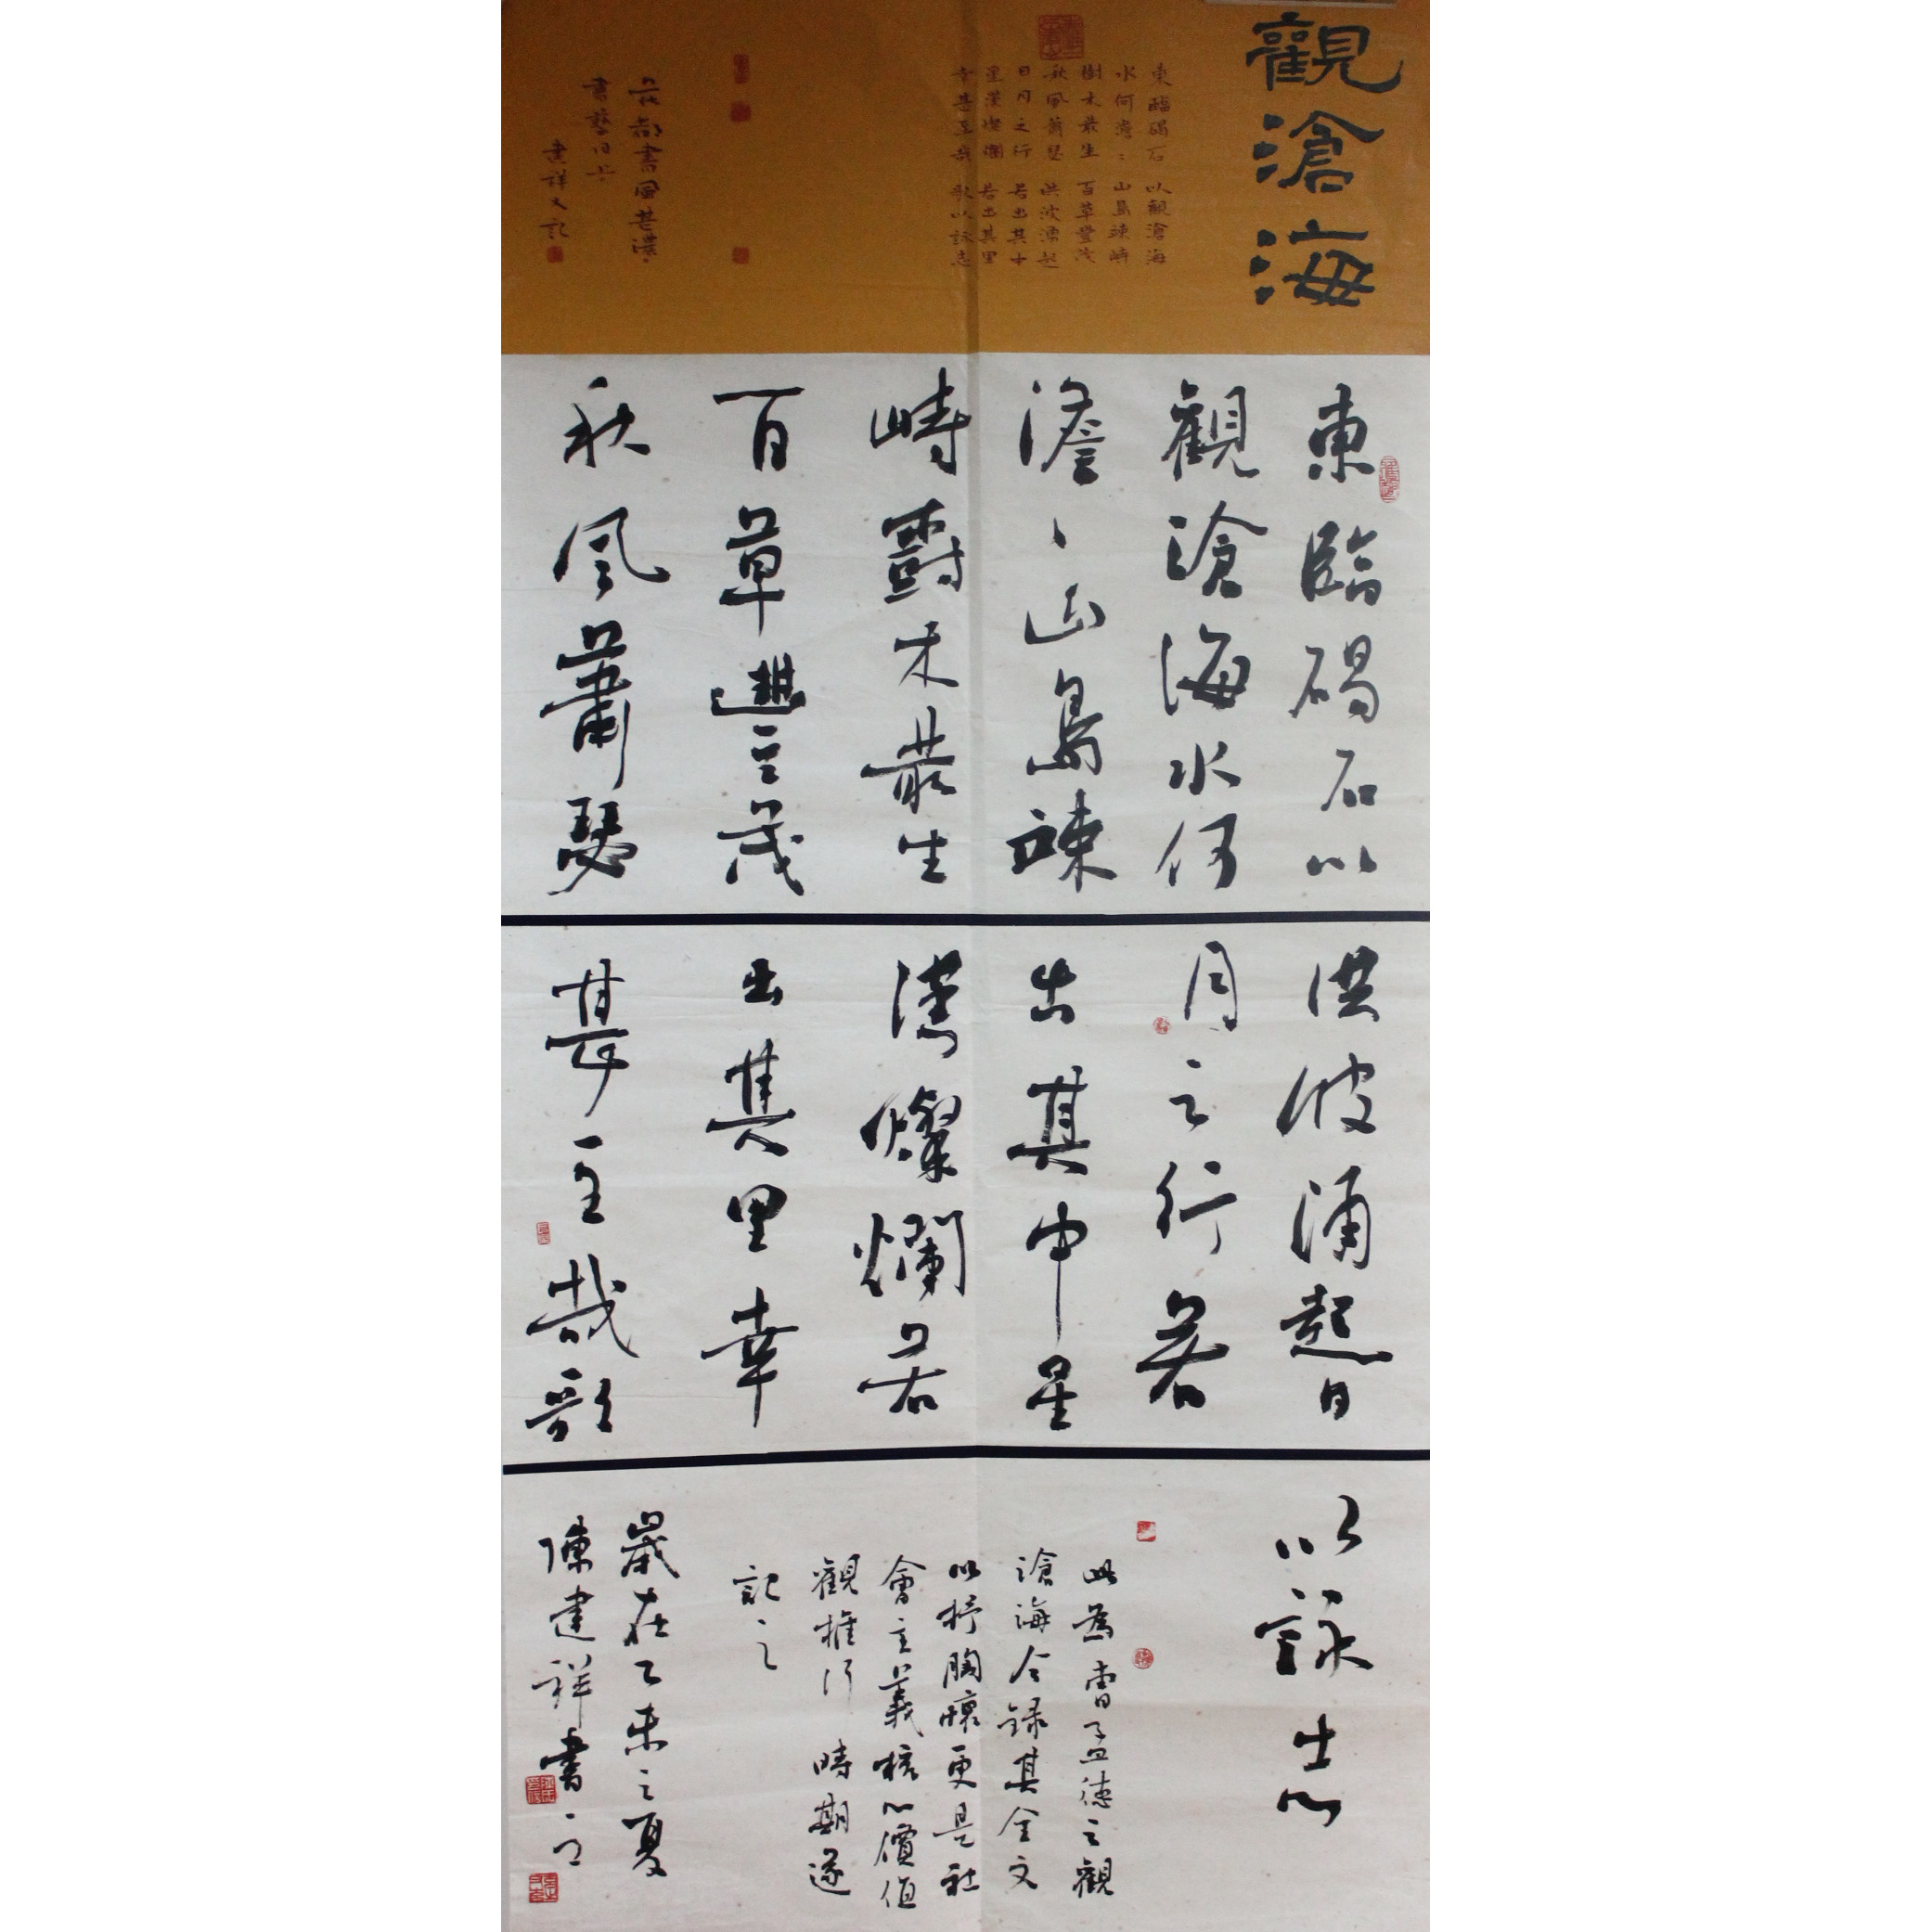 觀滄海
東臨碣石 以觀滄海
水何澹： 山島竦峙
樹木叢生 百草豐茂
秋風蕭瑟 洪波湧起
日月之行 若出其中
星漢燦爛 若出其里
幸甚至哉 歌以詠志
花都書風甚濃
書
建祥又記
東臨碣石以
觀滄海水何
澹丶山島竦
峙樹木叢生
百草豐茂
秋風蕭瑟
洪波涌起日
月之行若
出其中星
漢燦爛若
出其里幸
甚至哉歌
以詠志
此為曹孟德之觀
滄海今録其全文
以抒胸懷更是社
會主義核心價值
觀推行時期遂
記之
歲在乙未之夏
陳建祥書